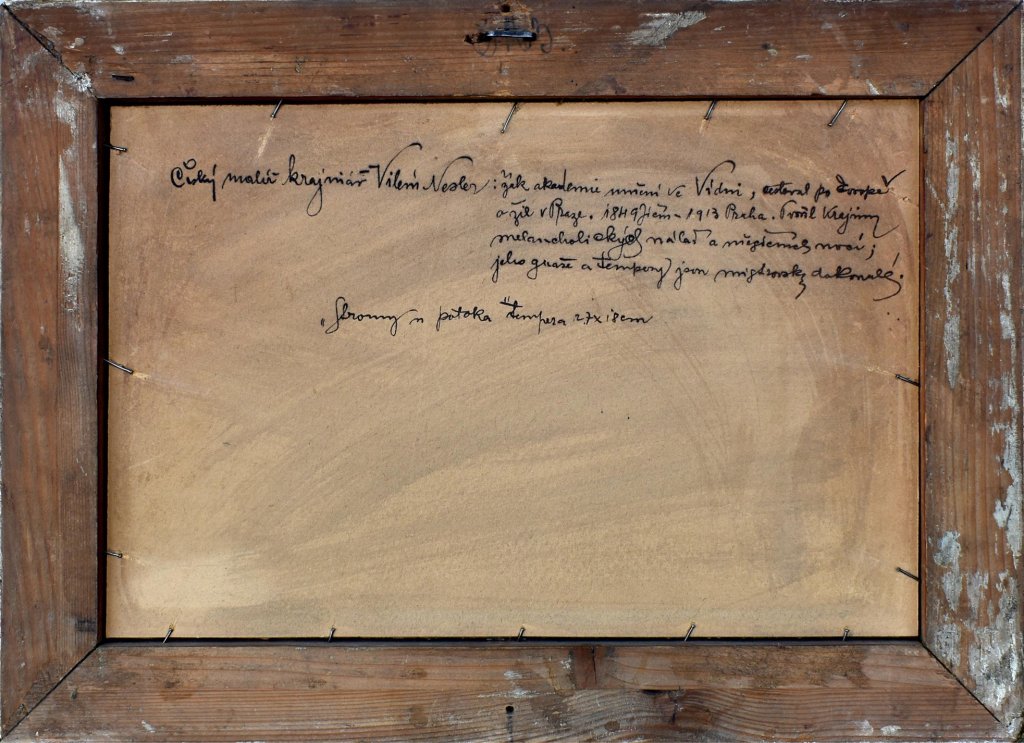 Český malíř krajinář Vilém Nesler: žák akademie umění ve Vídni, cestoval po Evropě
a žil v Praze. 1849 Jičín - 1913 Praha. Tvořil krajiny
melancholických nálad a měsíčních nocí;
jeho gvaše a tempery jsou mistrovsky dokonalé.
"Stromy u potoka tempera 27x18cm